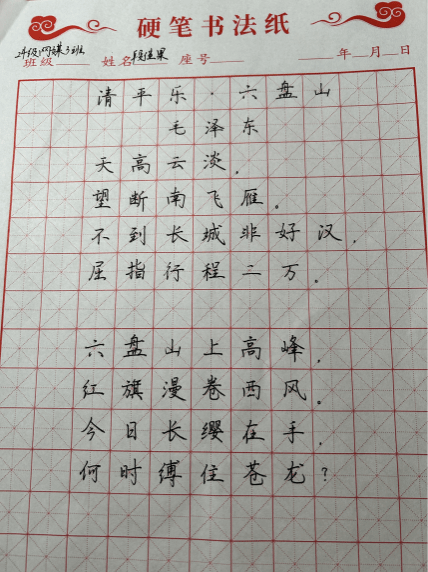 硬笔书法纸
班级 姓名 座号 年 月 日
清平乐·六盘山
毛泽东
天高云淡,
望断南飞雁。
不到长城非好汉,
屈指行程二万。
六盘山上高峰,
红旗漫卷西风。
今日长缨在手,
何时缚住苍龙?